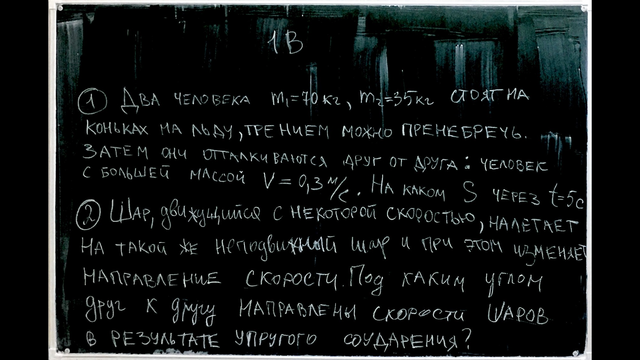 1В
① Два человека m₁=70кг, m₂=35кг стоят на
коньках на льду, трением можно пренебречь.
Затем они отталкиваются друг от друга: человек
с большей массой V=0,3м/с. На каком S через t=5с
② Шар, движущийся с некоторой скоростью, налетает
на такой же неподвижный шар и при этом изменяет
направление скорости. Под каким углом
друг к другу направлены скорости шаров
в результате упругого соударения?